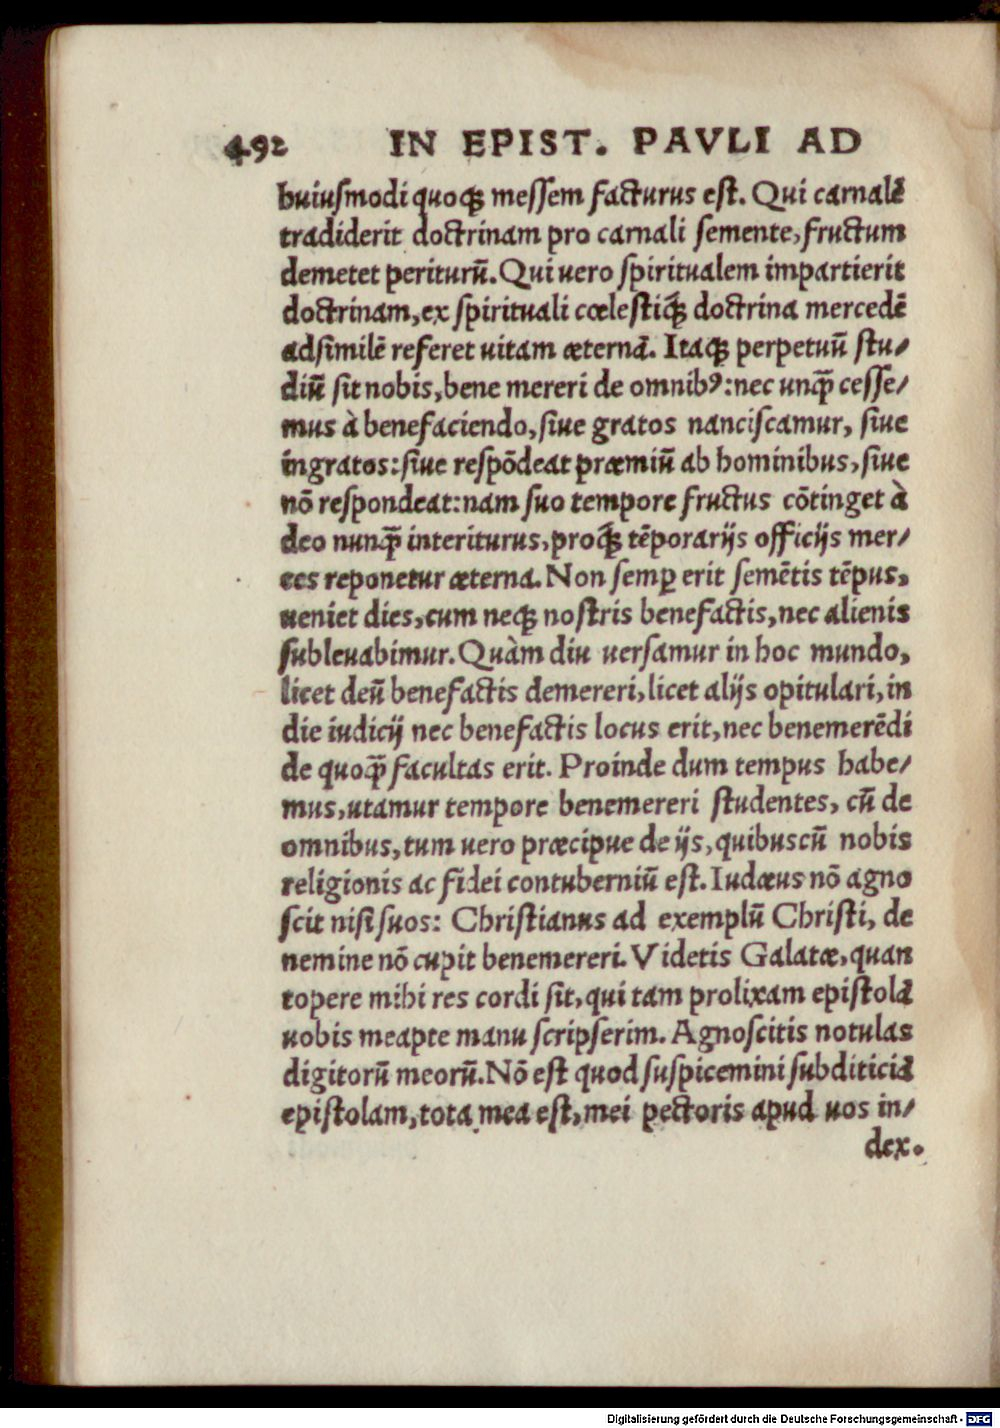 492 IN EPIST. PAVLI AD
huiusmodi quoq; messem facturus est. Qui carnalē
tradiderit doctrinam pro carnali semente, fructum
demetet periturū. Qui uero spiritualem impartierit
doctrinam, ex spirituali cœlestiq́; doctrina mercedē
adsimilē referet uitam æternā. Itaq; perpetuū stu/
diū sit nobis, bene mereri de omnibꝰ: nec unq̄ cesse/
mus à benefaciendo, siue gratos nanciscamur, siue
ingratos: siue respōdeat præmiū ab hominibus, siue
nō respondeat: nam suo tempore fructus cōtinget à
deo nunq̄ interiturus, proq́; tēporarijs officijs mer/
ces reponetur æterna. Non semꝑ erit semētis tēpus,
ueniet dies, cum neq; nostris benefactis, nec alienis
subleuabimur. Quàm diu uersamur in hoc mundo,
licet deū benefactis demereri, licet alijs opitulari, in
die iudicij nec benefactis locus erit, nec benemerēdi
de quoq̄ facultas erit. Proinde dum tempus habe/
mus, utamur tempore benemereri studentes, cū de
omnibus, tum uero præcipue de ijs, quibuscū nobis
religionis ac fidei contuberniū est. Iudæus nō agno
scit nisi suos: Christianus ad exemplū Christi, de
nemine nō cupit benemereri. Videtis Galatæ, quan
topere mihi res cordi sit, qui tam prolixam epistolā
uobis meapte manu scripserim. Agnoscitis notulas
digitorū meorū. Nō est quod suspicemini subditiciā
epistolam, tota mea est, mei pectoris apud uos in/
dex.
Digitalisierung gefördert durch die Deutsche Forschungsgemeinschaft - DFG